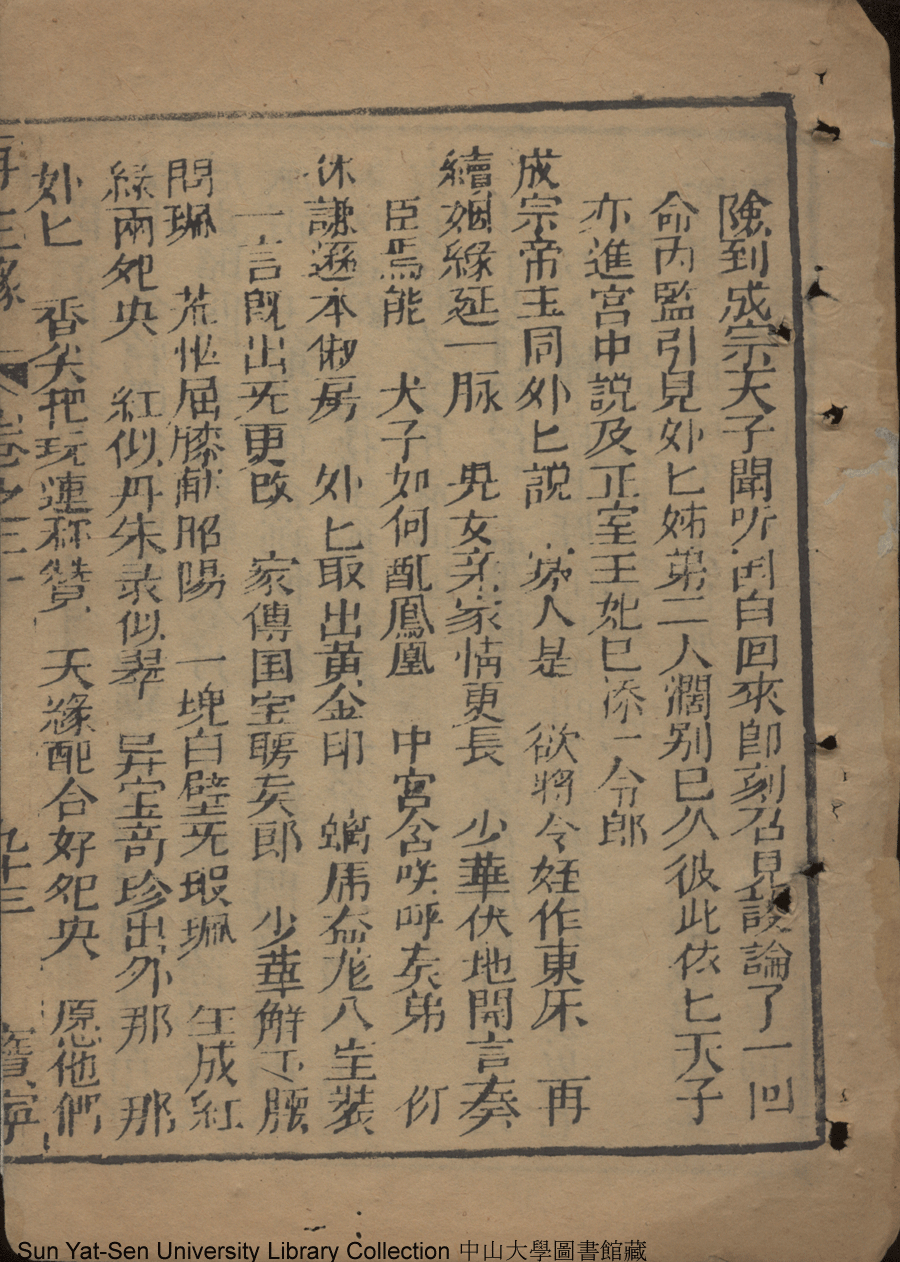 險到成宗天子聞听因白回來即刻召見談論了一回
命内監引見外匕姊弟二人濶别已久彼此依匕天子
亦進宮中説及正室王妃已添一令郎
成宗帝主同外匕説 寡人是 欲將令姪作東床 再
續姻緣延一脉 児女亲家情更長 少華伏地開言奏
臣焉能 犬子如何配鳳凰 中宮含咲呼矣弟 何
休謙遜本俶房 外匕取出黄金印 螭虎盘龙八宝装
一言既出无更改 家傳国宝聘矣郎 少華解下腰
間珮 荒忙屈膝献昭陽 一塊白壁无瑕珮 生成紅
緑兩夗央 紅似丹朱录似翠 异宝奇珍出外那 那
外匕 香尖把玩連称赞 天緣配合好夗央 愿他們
再生緣 卷之三十 九十三 寶寧
Sun Yat-Sen University Library Collection 中山大學圖書館藏